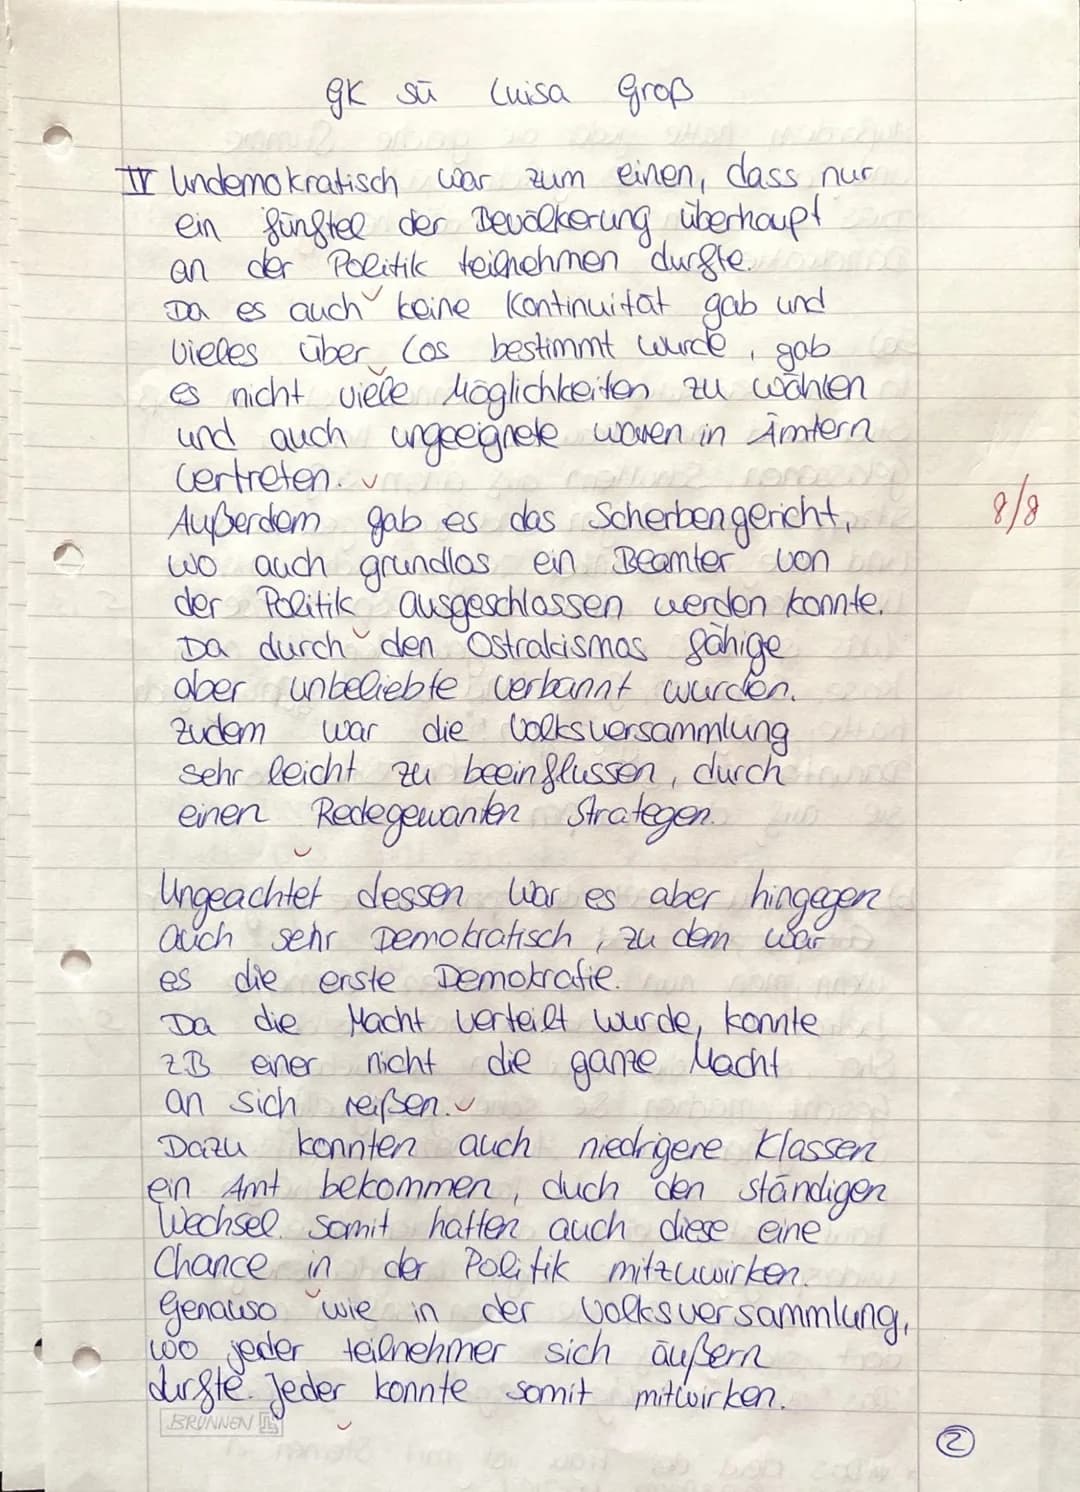 GK sü Luisa Groß
IV Undemokratisch war zum einen, dass nur
ein fünftel der Bevölkerung überhaupt
an der Politik teilnehmen durfte.
Da es auch keine Kontinuität gab und
vieles über Los bestimmt wurde, gab
es nicht viele Möglichkeiten zu wählen
und auch ungeeignete waren in Ämtern
vertreten.
Außerdem gab es das Scherbengericht,
8/8
wo auch grundlos ein Beamter von
der Politik ausgeschlossen werden konnte.
Da durch den Ostrakismos fähige
aber unbeliebte verbannt wurden.
Zudem war die Volksversammlung
sehr leicht zu beeinflussen, durch
einen Redegewanten Strategen.
Ungeachtet dessen war es aber hingegen
auch sehr Demokratisch, zu dem war
es die erste Demokratie.
Da die Macht verteilt wurde, konnte
z.B einer nicht die ganze Macht
an sich reißen.
Dazu konnten auch niedrigere Klassen
ein Amt bekommen, duch den ständigen
Wechsel. Somit hatten auch diese eine
Chance in der Politik mitzuwirken.
Genauso wie in der Volksversammlung,
wo jeder teilnehmer sich äußern
durfte. Jeder konnte somit mitwirken.
BRUNNEN
2